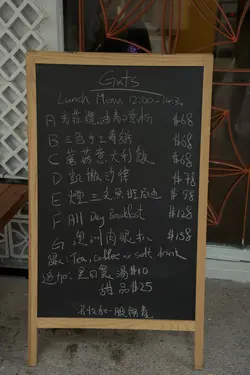 Guts
Lunch Menu 12:00-14:30
A $68
B 三色手工 $68
C 蘑菇意大利飯 $68
D 凱撒沙律 $78
E 煙三文魚班尼迪 $98
F All Day Breakfast $128
G 澳洲肉眼扒 $158
Tea, coffee or soft drink
追加: 是日餐湯$10
甜品$25
另收加一服務費